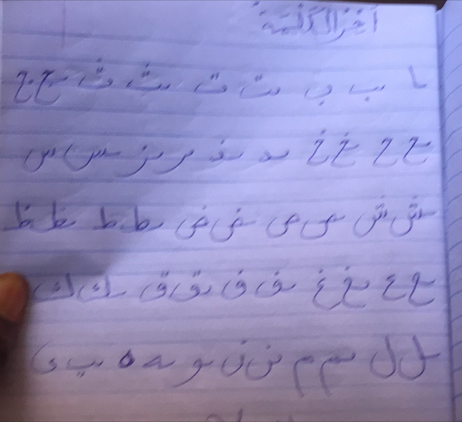 آخِرُ الْكَلِمَةِ
ـا ـب ب ـت ت ـث ث ـج ج
ـح ح ـخ خ ـد ـذ ـر ـز ـس س
ـش ش ـص ص ـض ض ـط ط ـظ ظ
ـع ع ـغ غ ـف ف ـق ق ـك ك
ـل ل ـم م ـن ن ـو ـه ه ـي ى